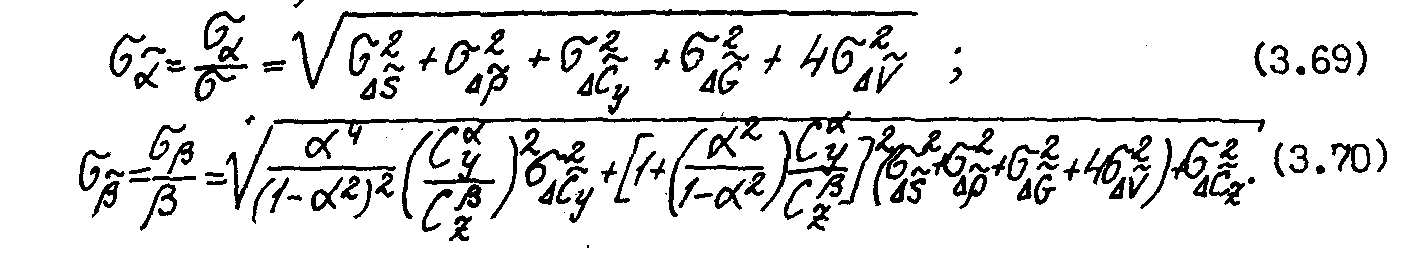 σ_α̃ = σ_α/σ = √(σ²_ΔS̃ + σ²_Δρ̃ + σ²_ΔC̃_y + σ²_ΔG̃ + 4σ²_ΔṼ) ; (3.69)
σ_β̃ = σ_β/β = √(α⁴/(1-α²)² (C_y^α/C_z^β)² σ²_ΔC̃_y + [1+(α²/(1-α²)) C_y^α/C_z^β]² (σ²_ΔS̃ + σ²_Δρ̃ + σ²_ΔG̃ + 4σ²_ΔṼ) + σ²_ΔC̃_z). (3.70)